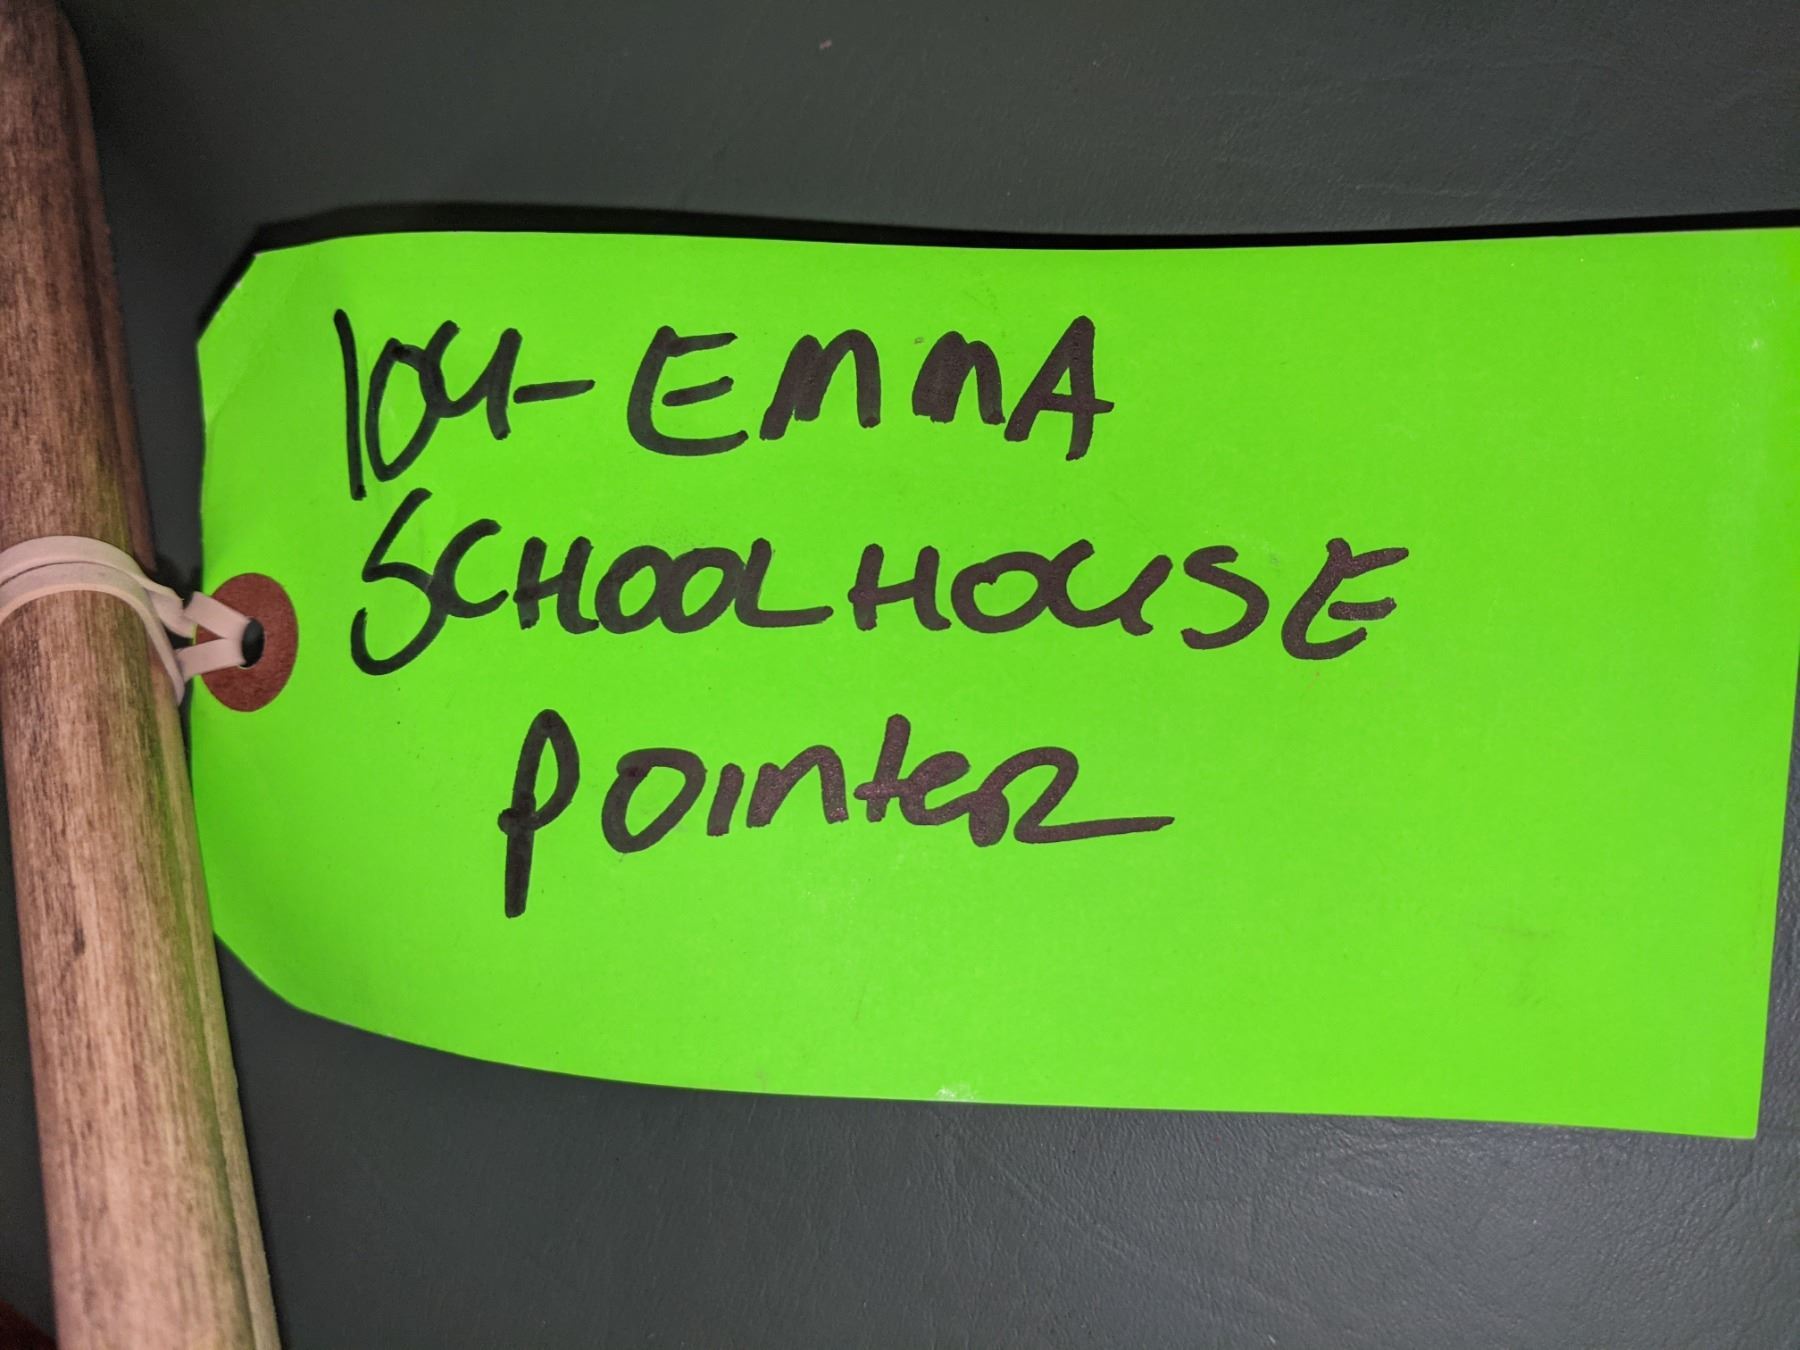 104- EMMA
SCHOOLHOUSE
POINTER